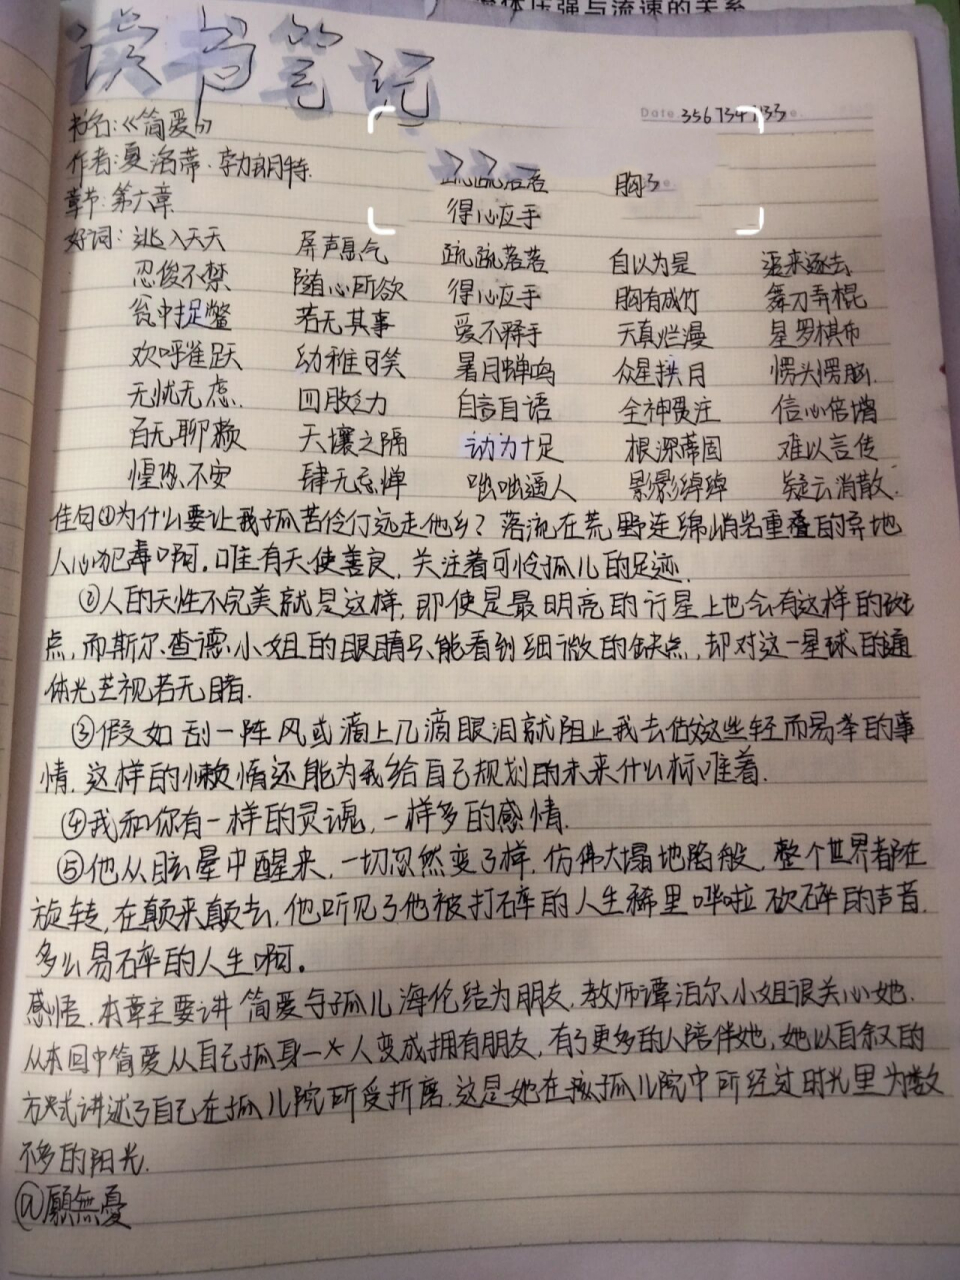 流体压强与流速的关系
读书笔记
Date 356734733
书名:《简爱》
作者:夏洛蒂·勃朗特.
疏疏落落 胸
章节:第六章
得心应手
好词: 逃入天天 屏声息气 疏疏落落 自以为是 逛来逐去
忍俊不禁 随心所欲 得心应手 胸有成竹 舞刀弄棍
瓮中捉鳖 若无其事 爱不释手 天真烂漫 星罗棋布
欢呼雀跃 幼稚可笑 暑月蝉鸣 众星拱月 愣头愣脑.
无忧无虑. 回肢乏力 自言自语 全神贯注 信心倍增
百无聊赖 天壤之隔 动力十足 根深蒂固 难以言传
惶恐不安 肆无忌惮 咄咄逼人 影影绰绰 疑云消散.
佳句①为什么要让我孤苦伶仃远走他乡?落流在荒野连绵峭岩重叠的异地
人心犯毒啊.唯有天使善良.关注着可怜孤儿的足迹.
②人的天性不完美就是这样,即使是最明亮的行星上也会有这样的斑
点,而斯尔查德小姐的眼睛只能看到细微的缺点,却对这一星球的通
体光芒视若无睹.
③假如刮一阵风或滴上几滴眼泪就阻止我去做这些轻而易举的事
情.这样的懒惰还能为我给自己规划的未来什么标准着.
④我和你有一样的灵魂,一样多的感情.
⑤他从眩晕中醒来,一切忽然变了样.仿佛大塌地陷般,整个世界都在
旋转,在颠来颠去,他听见了他被打碎的人生稀里哗啦砍碎的声音.
多么易碎的人生啊。
感悟.本章主要讲简爱与孤儿海伦结为朋友.教师谭泊尔小姐很关心她.
从本回中简爱从自己孤身一人变成拥有朋友,有了更多的人陪伴她,她以自叙的
方式讲述了自己在孤儿院所受折磨.这是她在孤儿院中所经过时光里为数
不多的阳光.
@願無憂